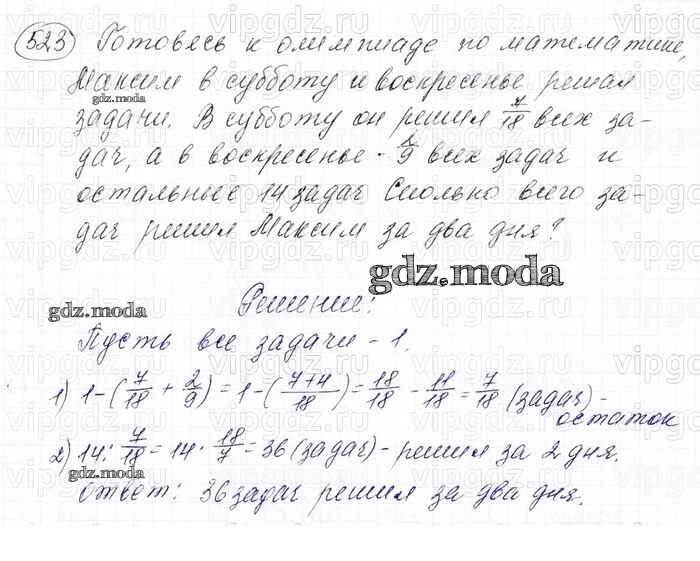 523 Готовясь к олимпиаде по математике,
Максим в субботу и воскресенье решал
задачи. В субботу он решил 7/18 всех за-
дач, а в воскресенье - 2/9 всех задач и
остальные 14 задач Сколько всего за-
дач решил Максим за два дня?
gdz.moda
Решение:
gdz.moda
Пусть все задачи - 1.
1) 1-(7/18 + 2/9) = 1-(7+4/18) = 18/18 - 11/18 = 7/18 (задач) -
остаток
2) 14 : 7/18 = 14 · 18/7 = 36 (задач) - решил за 2 дня.
gdz.moda
Ответ: 36 задач решил за два дня.